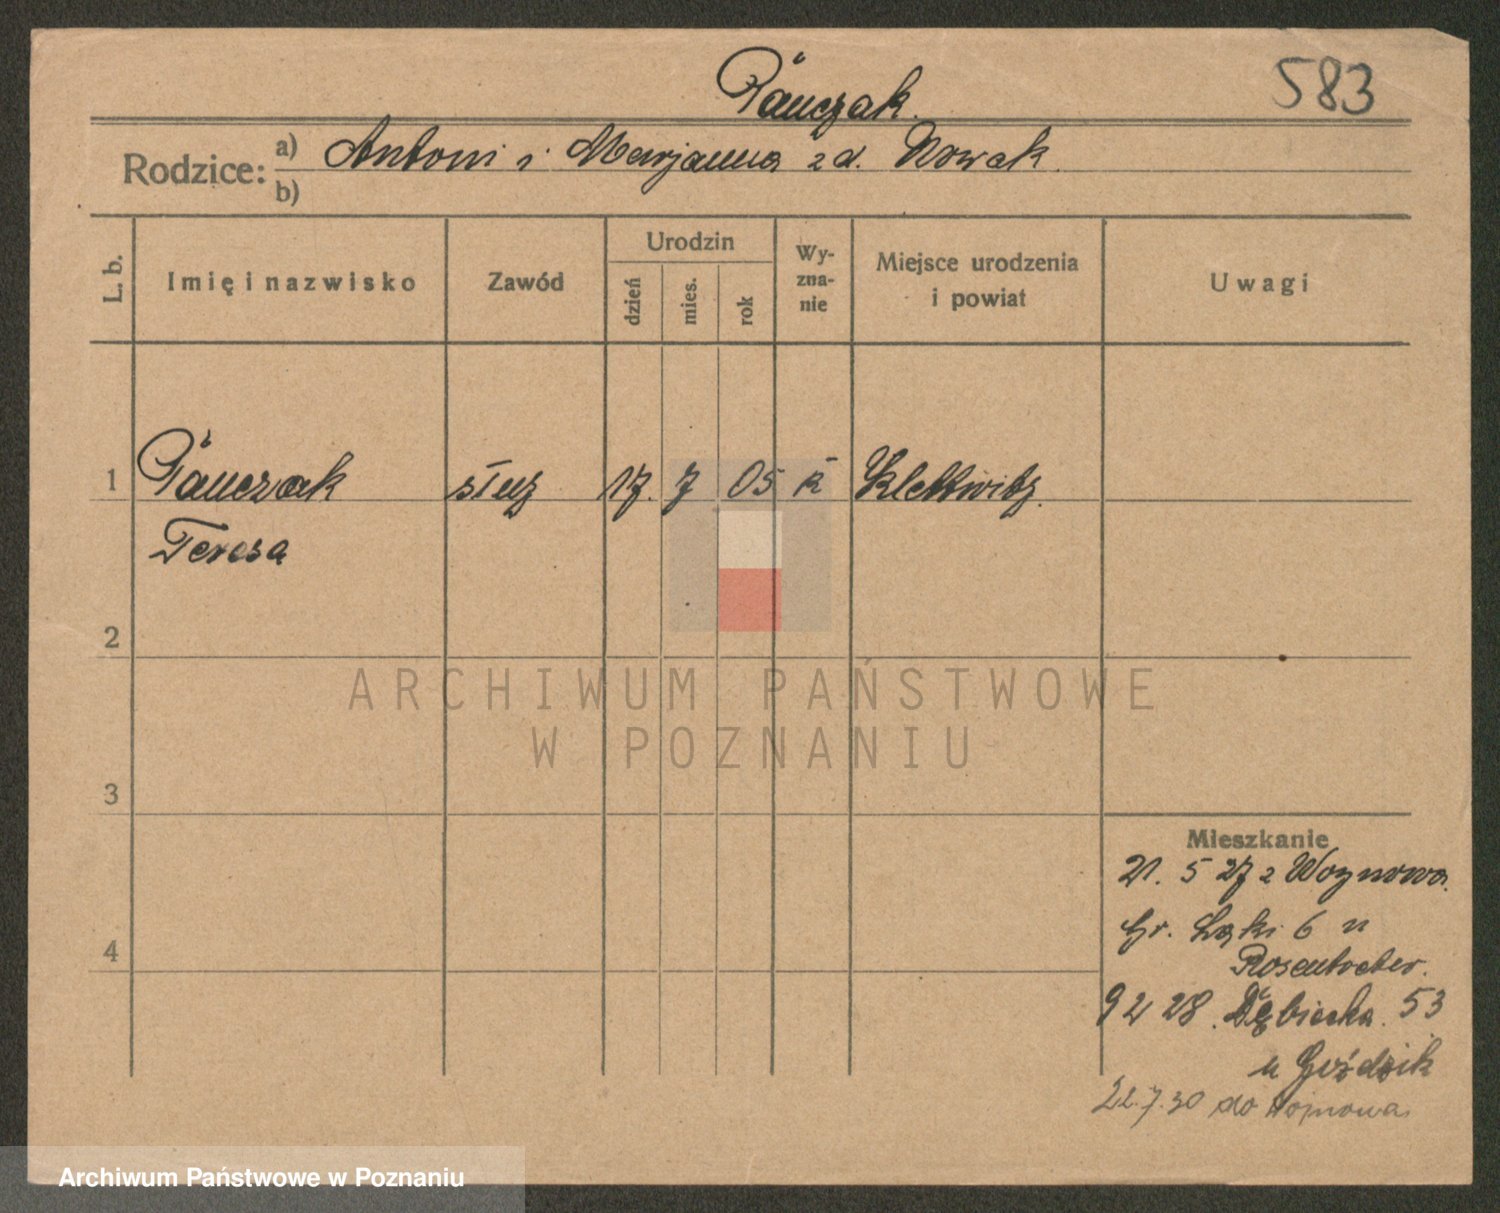 Pańczak.
583
Rodzice:
a) Antoni i Marjanna z d. Nowak
b)
L. b.
Imię i nazwisko
Zawód
Urodzin
dzień
mies.
rok
Wy-
zna-
nie
Miejsce urodzenia
i powiat
Uwagi
1 Pańczak służ 17. 7 05 k Klettwitz.
Teresa
2
3
4
Mieszkanie
21. 5 27 z Woynowa.
Gr. Łąki 6 u
Rosentreter.
Dębiecka. 53
u Goździk
22.7.30 do Wojnowa
ARCHIWUM PAŃSTWOWE
W POZNANIU
Archiwum Państwowe w Poznaniu